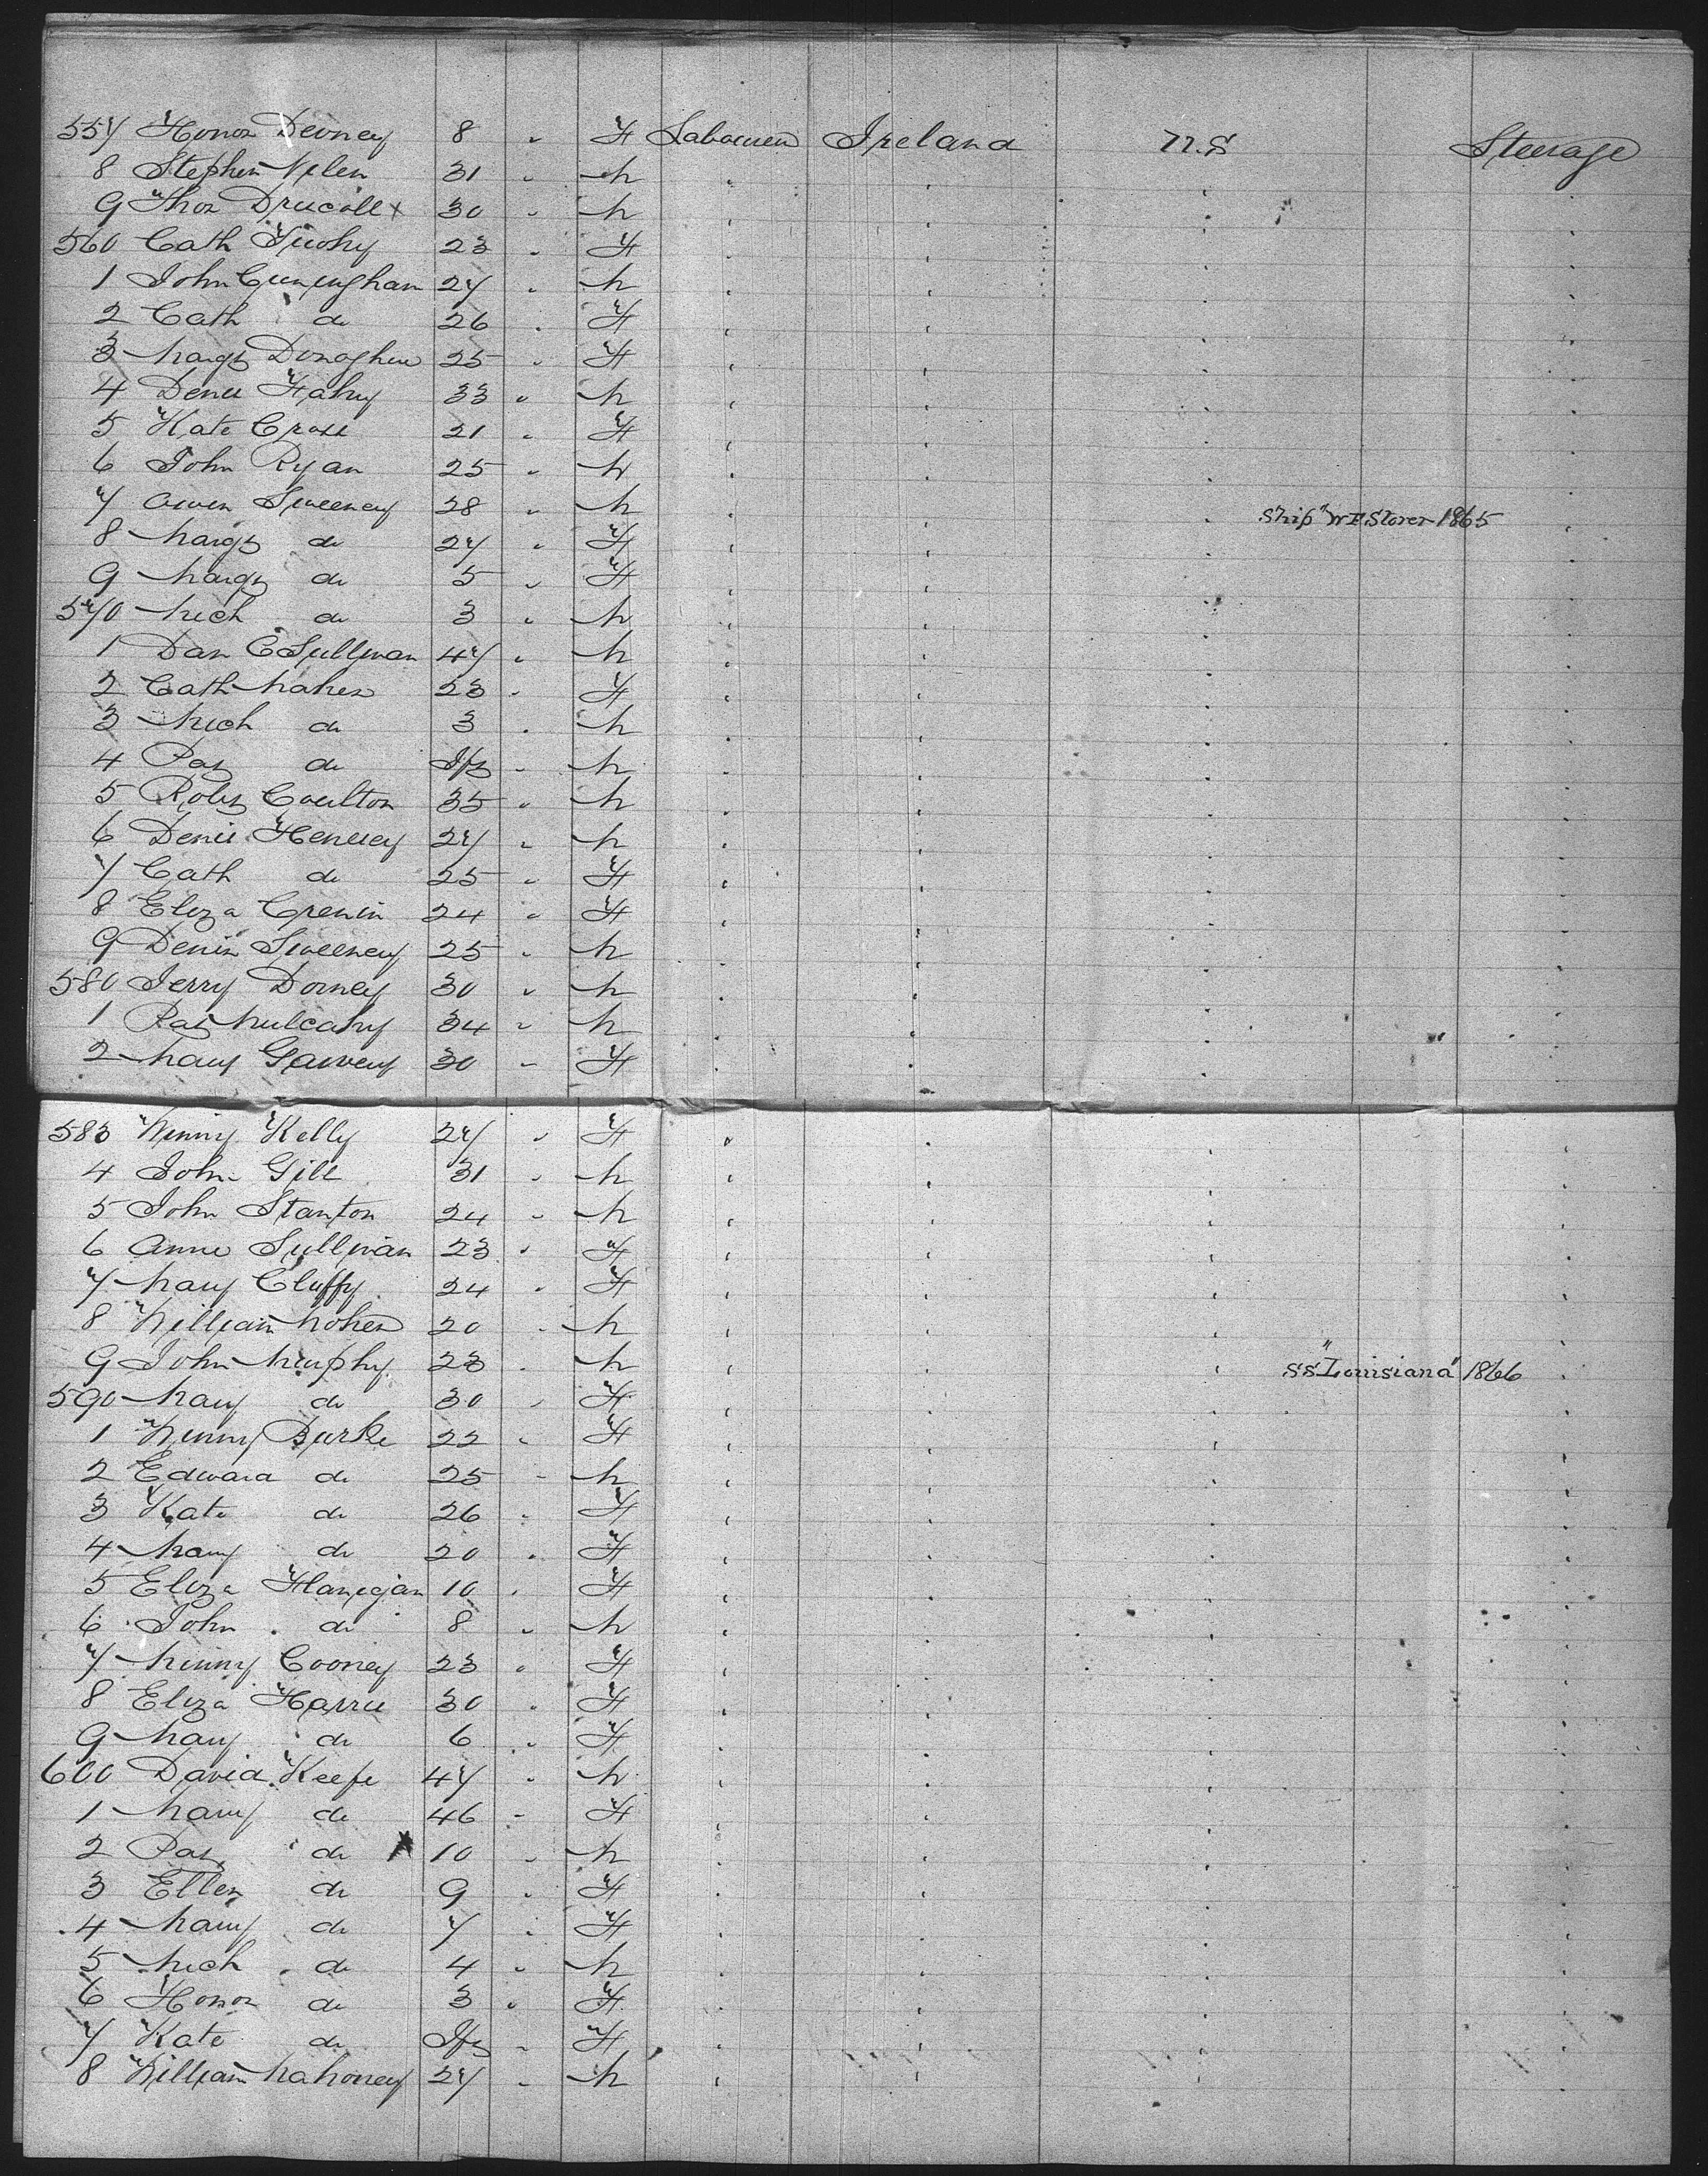 557 Honor Devney 8 " F Labourer Ireland U.S Steerage
8 Stephen Nilen 31 " M " " " "
9 Thos Driscoll x 30 " M " " " "
560 Cath Tuohy 23 " F " " " "
1 John Cuningham 27 " M " " " "
2 Cath do 26 " F " " " "
3 Margt Donaghue 25 " F " " " "
4 Denis Fahy 33 " M " " " "
5 Kate Cross 21 " F " " " "
6 John Ryan 25 " M " " " "
7 Owen Sweeney 28 " M " " " Ship "W F Storer 1865 "
8 Margt do 27 " F " " " "
9 Margt do 5 " F " " " "
570 Mich do 3 " M " " " "
1 Dan O Sullivan 47 " M " " " "
2 Cath Maher 23 " F " " " "
3 Mich do 3 " M " " " "
4 Pat do Ift " M " " " "
5 Robt Coulton 35 " M " " " "
6 Denis Henesey 27 " M " " " "
7 Cath do 25 " F " " " "
8 Eliza Cremin 24 " F " " " "
9 Denis Sweeney 25 " M " " " "
580 Jerry Dorney 30 " M " " " "
1 Pat Mulcahy 34 " M " " " "
2 Mary Garvey 30 " F " " " "
583 Winny Kelly 27 " F " " " "
4 John Gill 31 " M " " " "
5 John Stanton 24 " M " " " "
6 Anne Sullivan 23 " F " " " "
7 Mary Cluffy 24 " F " " " "
8 William Moher 20 " M " " " "
9 John Murphy 23 " M " " " SS "Louisiana" 1866 "
590 Mary do 30 " F " " " "
1 Winny Burke 22 " F " " " "
2 Edward do 25 " M " " " "
3 Kate do 26 " F " " " "
4 Mary do 20 " F " " " "
5 Eliza Flanigan 10 " F " " " "
6 John do 8 " M " " " "
7 Minny Cooney 23 " F " " " "
8 Eliza Harris 30 " F " " " "
9 Mary do 6 " F " " " "
600 David Keefe 47 " M " " " "
1 Mary do 46 " F " " " "
2 Pat do 10 " M " " " "
3 Ellen do 9 " F " " " "
4 Mary do 7 " F " " " "
5 Mich do 4 " M " " " "
6 Honor do 3 " F " " " "
7 Kate do Ift " F " " " "
8 William Mahoney 27 " M " " " "